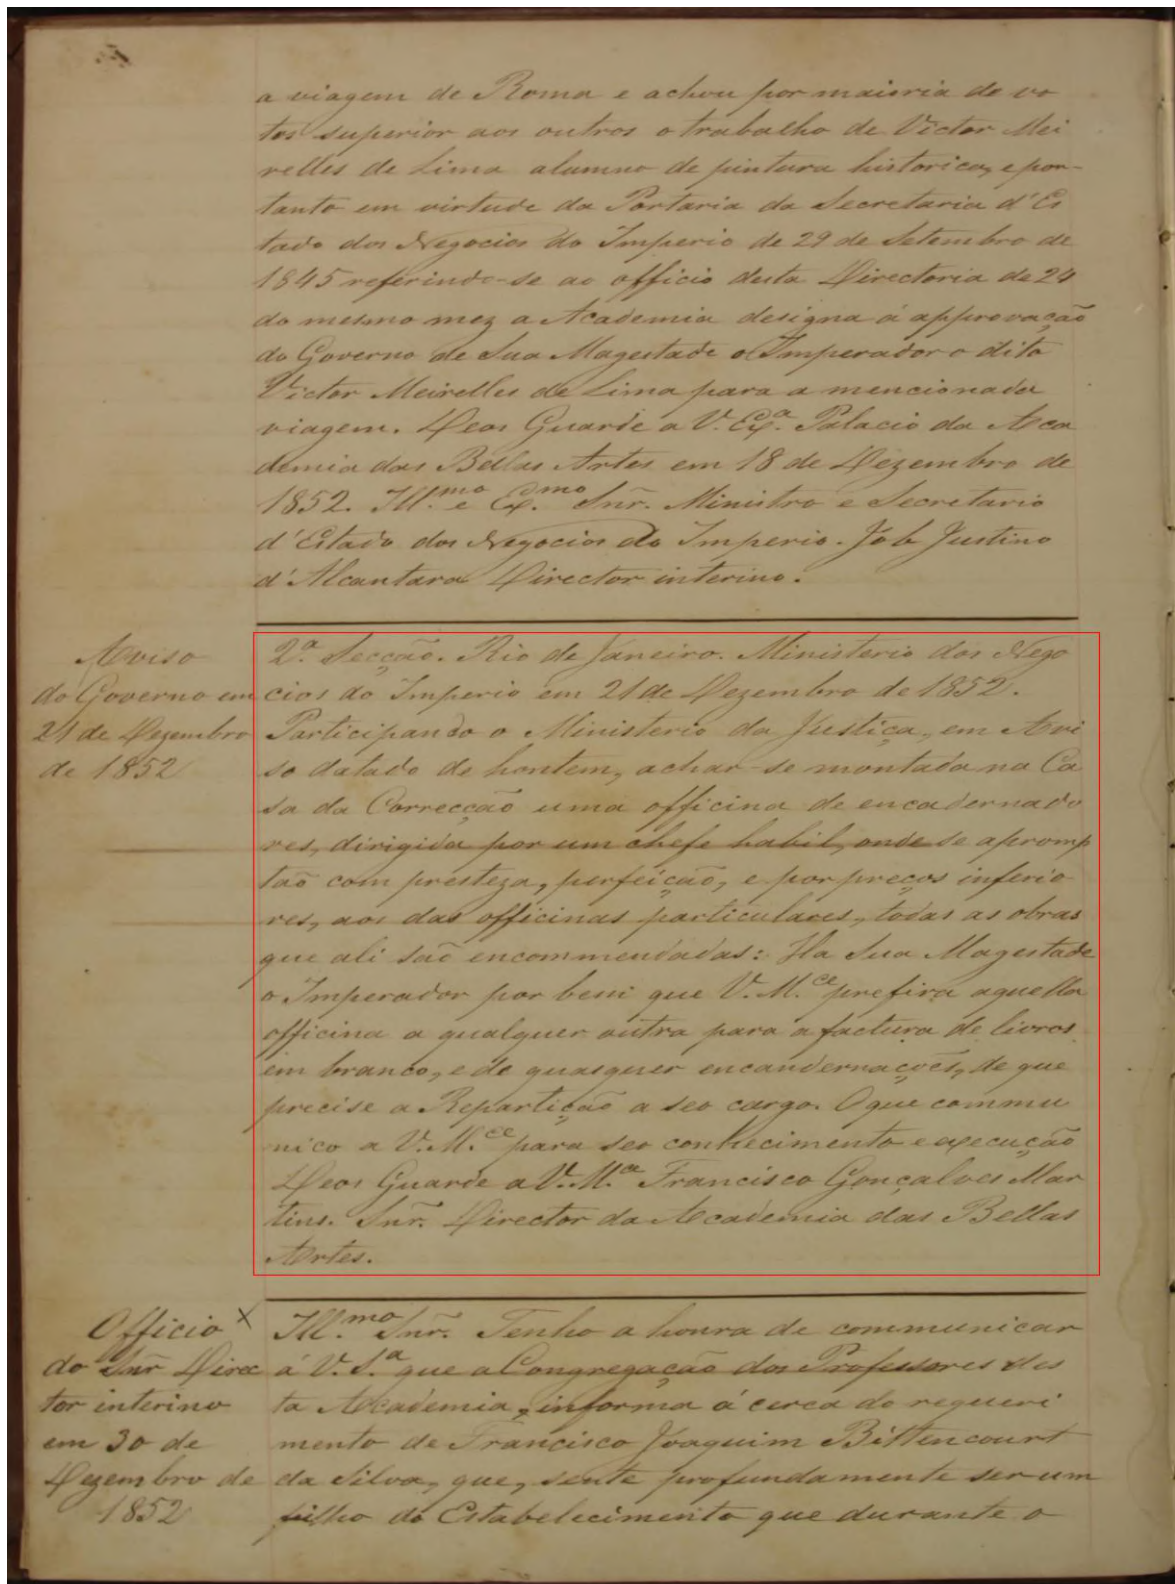 a viagem de Roma e achou por maioria de vo
tos superior aos outros o trabalho de Victor Mei
relles de Lima alumno de pintura historica, e por-
tanto em virtude da Portaria da Secretaria d'Es
tado dos Negocios do Imperio de 29 de Setembro de
1845 referindo-se ao officio desta Directoria de 24
do mesmo mez a Academia designa á approvação
do Governo de Sua Magestade o Imperador o dito
Victor Meirelles de Lima para a mencionada
viagem. Deos Guarde a V. Exª. Palacio da Aca
demia das Bellas Artes em 18 de Dezembro de
1852. Ill.mo e Ex.mo Snr. Ministro e Secretario
d'Estado dos Negocios do Imperio. Job Justino
d'Alcantara Director interino.
Aviso
do Governo em
21 de Dezembro
de 1852
2ª. Secção. Rio de Janeiro. Ministerio dos Nego
cios do Imperio em 21 de Dezembro de 1852.
Participando o Ministerio da Justiça, em Avi
so datado de hontem, achar-se montada na Ca
sa da Correcção uma officina de encadernado
res, dirigida por um chefe habil, onde se apromp
tão com presteza, perfeição, e por preços inferio
res, aos das officinas particulares, todas as obras
que ali são encommendadas: Ha Sua Magestade
o Imperador por bem que V. M.ce prefira aquella
officina a qualquer outra para a factura de livros
em branco, e de quaesquer encandernações, de que
precise a Repartição a seo cargo. O que commu
nico a V. M.ce para seo conhecimento e execução
Deos Guarde a V. M.ce Francisco Gonçalves Mar
tins. Snr. Director da Academia das Bellas
Artes.
Officio X
do Snr Direc
tor interino
em 30 de
Dezembro de
1852
Ill.mo Snr. Tenho a honra de communicar
á V. S.a que a Congregação dos Professores des
ta Academia, informa á cerca do requeri
mento de Francisco Joaquim Bittencourt
da Silva, que, sente profundamente ser um
filho do Estabelecimento que durante o